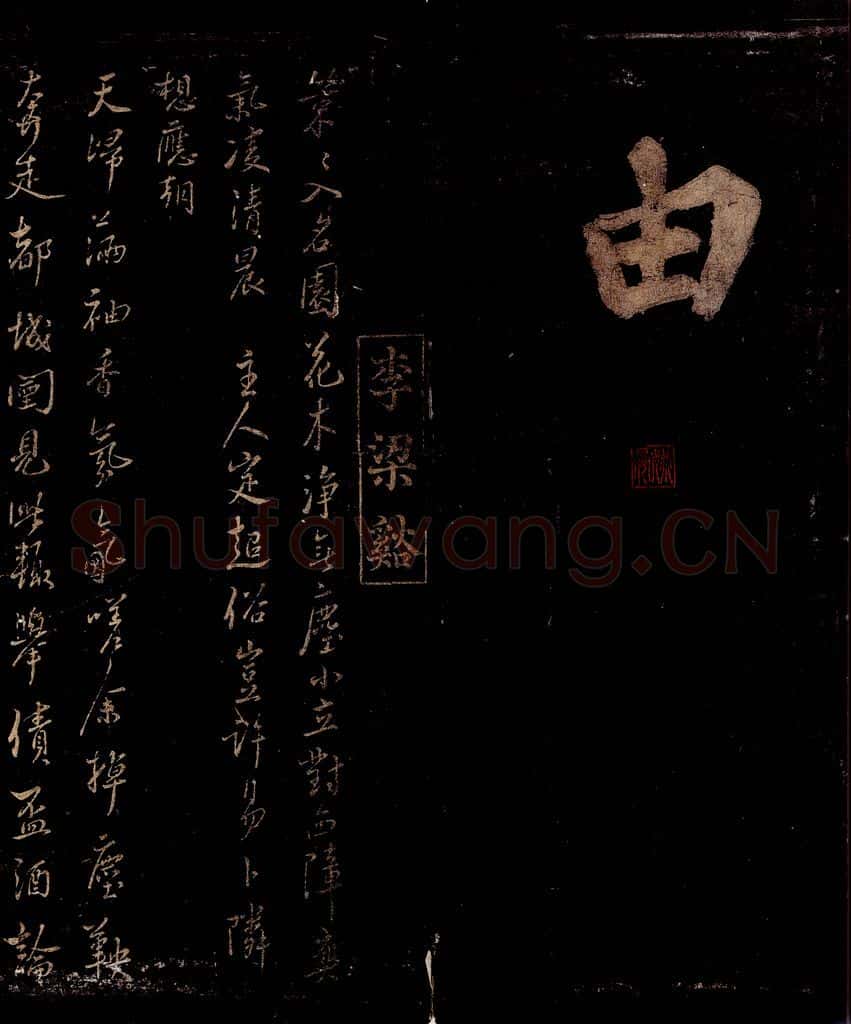 由
李梁谿
策〻入名園花木淨無塵小立對面障爽
氣凌清晨 主人定超俗豈許易卜隣
想應朝
天歸滿袖香氤氳嗟余掉塵鞅
奔走都城闉見此輒舉債盃酒論
Shufawang.CN